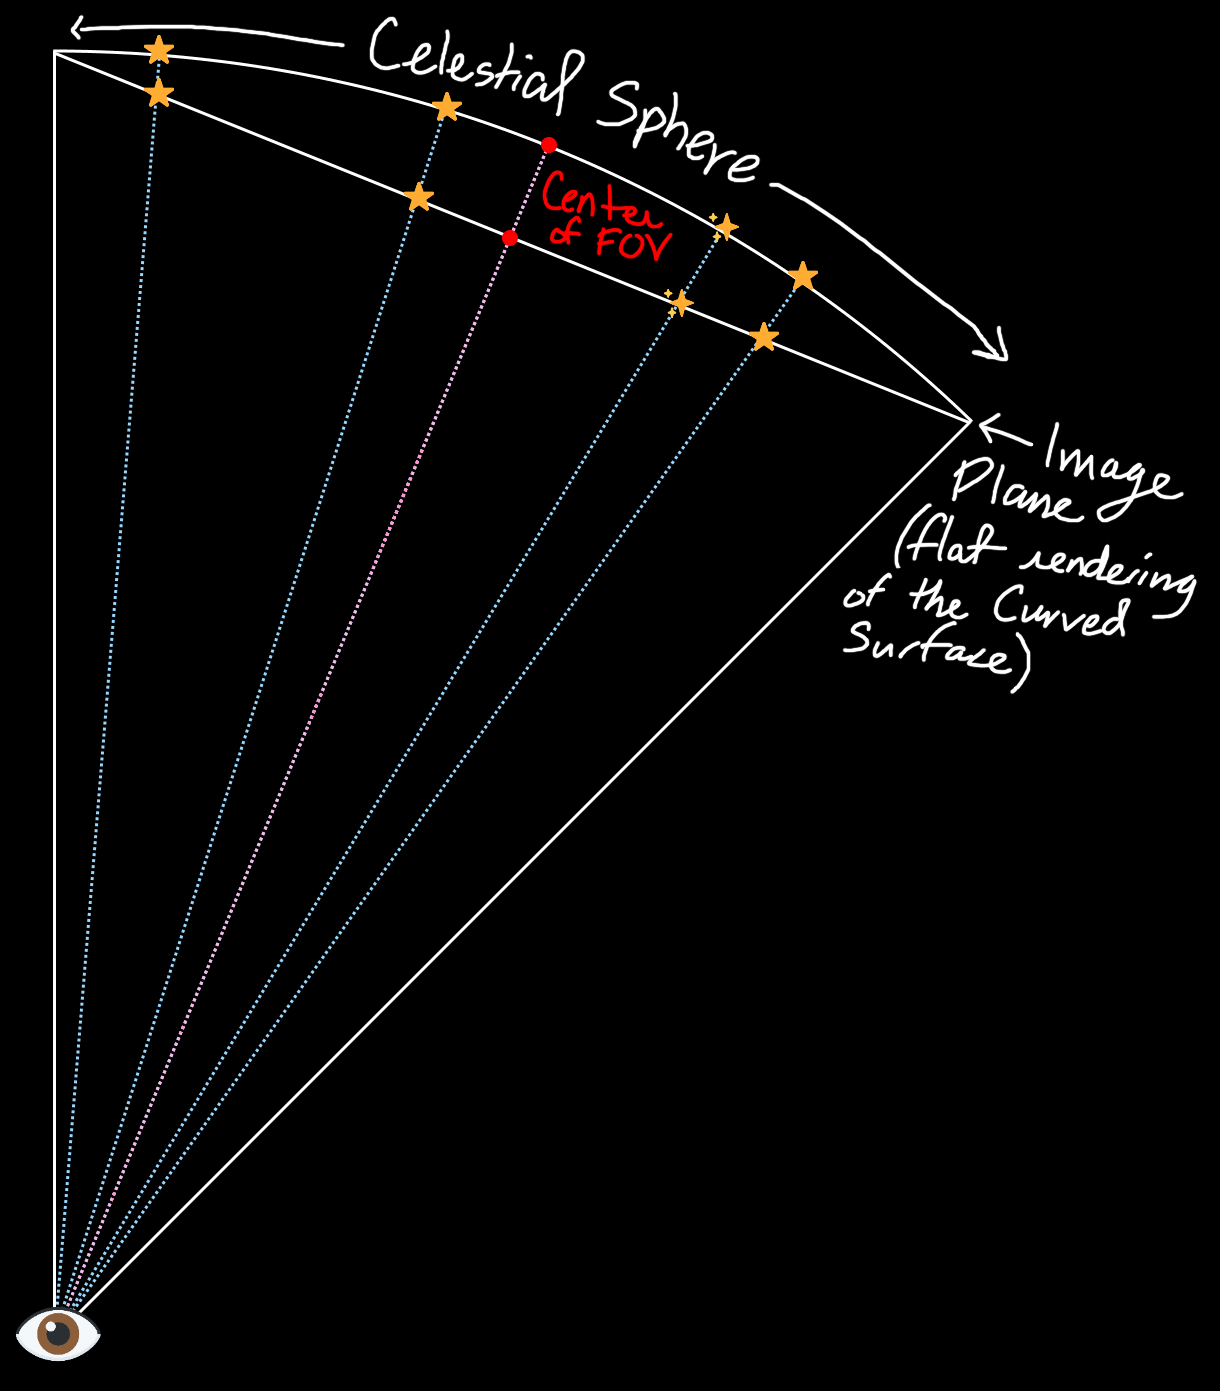 Celestial Sphere
Center
of FOV
Image
Plane
(flat rendering
of the Curved
Surface)